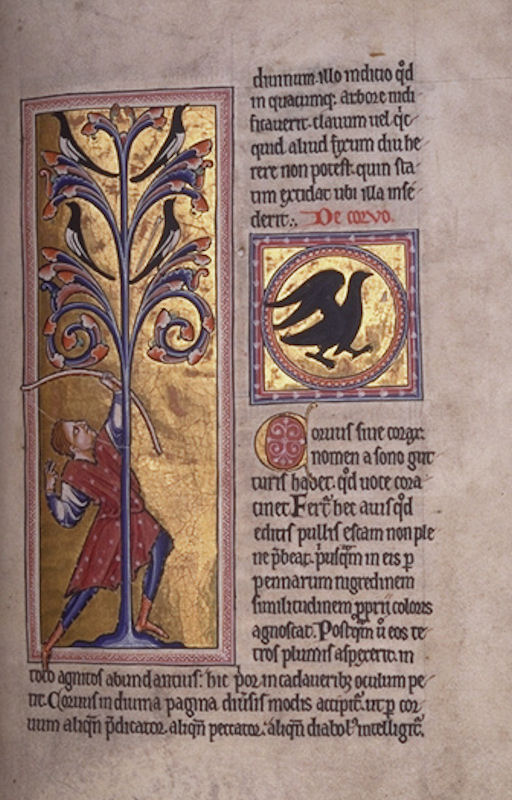 diuinum. illo indicio qđ
in quacumq; arbore nidi
ficauerit. clauum uel qic
quid aliud fixum diu he
rere non potest. quin sta
tim excidat ubi illa inse
derit. De coruo.
Coruus siue corax:
nomen a sono gut
turis habet. qđ uoce cora
cinet. Fert hec auis qđ
editis pullis escam non ple
ne p̄beat. p̄usq̄m in eis p̲
pennarum nigredinem
similitudinem p̲prii coloris
agnoscat. Postq̄m ů eos te
tros plumis aspexerit. in
toto agnitos abundantius: hic p̊or in cadauerib; oculum pe
tit. Coruus in diuina pagina diu͛sis modis accipit͛. ut p̲ cor
uum aliqn̄ p̄dicator. aliqn̄ peccator. aliqn̄ diabol' intelligit͛.